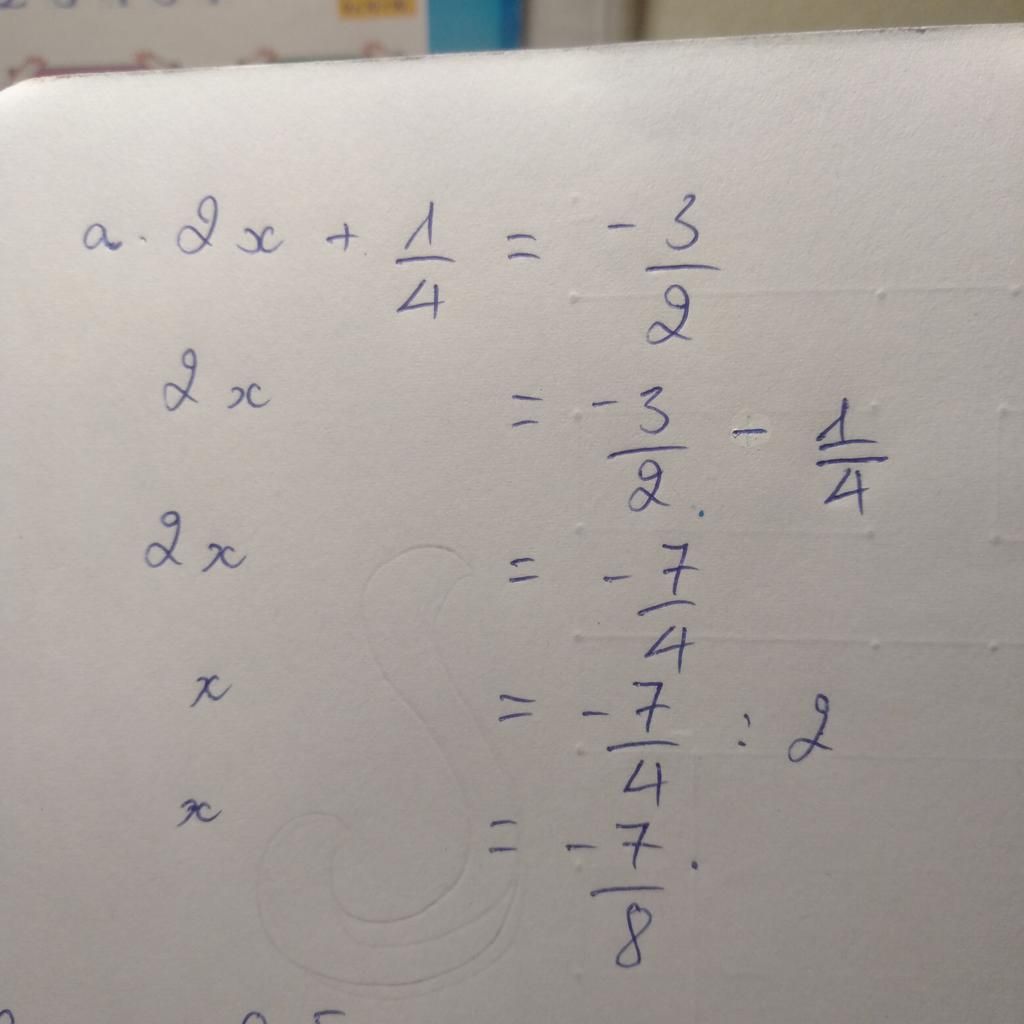 a. 2x + 1/4 = -3/2
2x = -3/2 - 1/4
2x = -7/4
x = -7/4 : 2
x = -7/8.